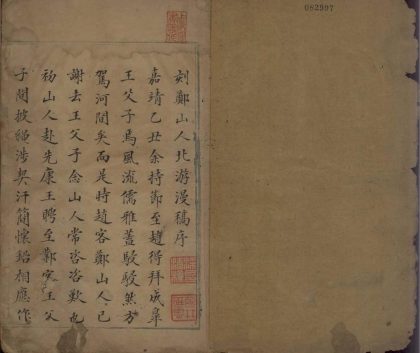 082997
刻鄭山人北游漫稿序
嘉靖乙丑余持節至趙得拜成皋
王父子焉風流儒雅蓋駸駸然方
駕河間矣而是時趙客鄭山人已
謝去王父子念山人常咨咨歎也
初山人赴先康王聘至鄴究王父
子間披縚涉契汗簡懷瑫相應作